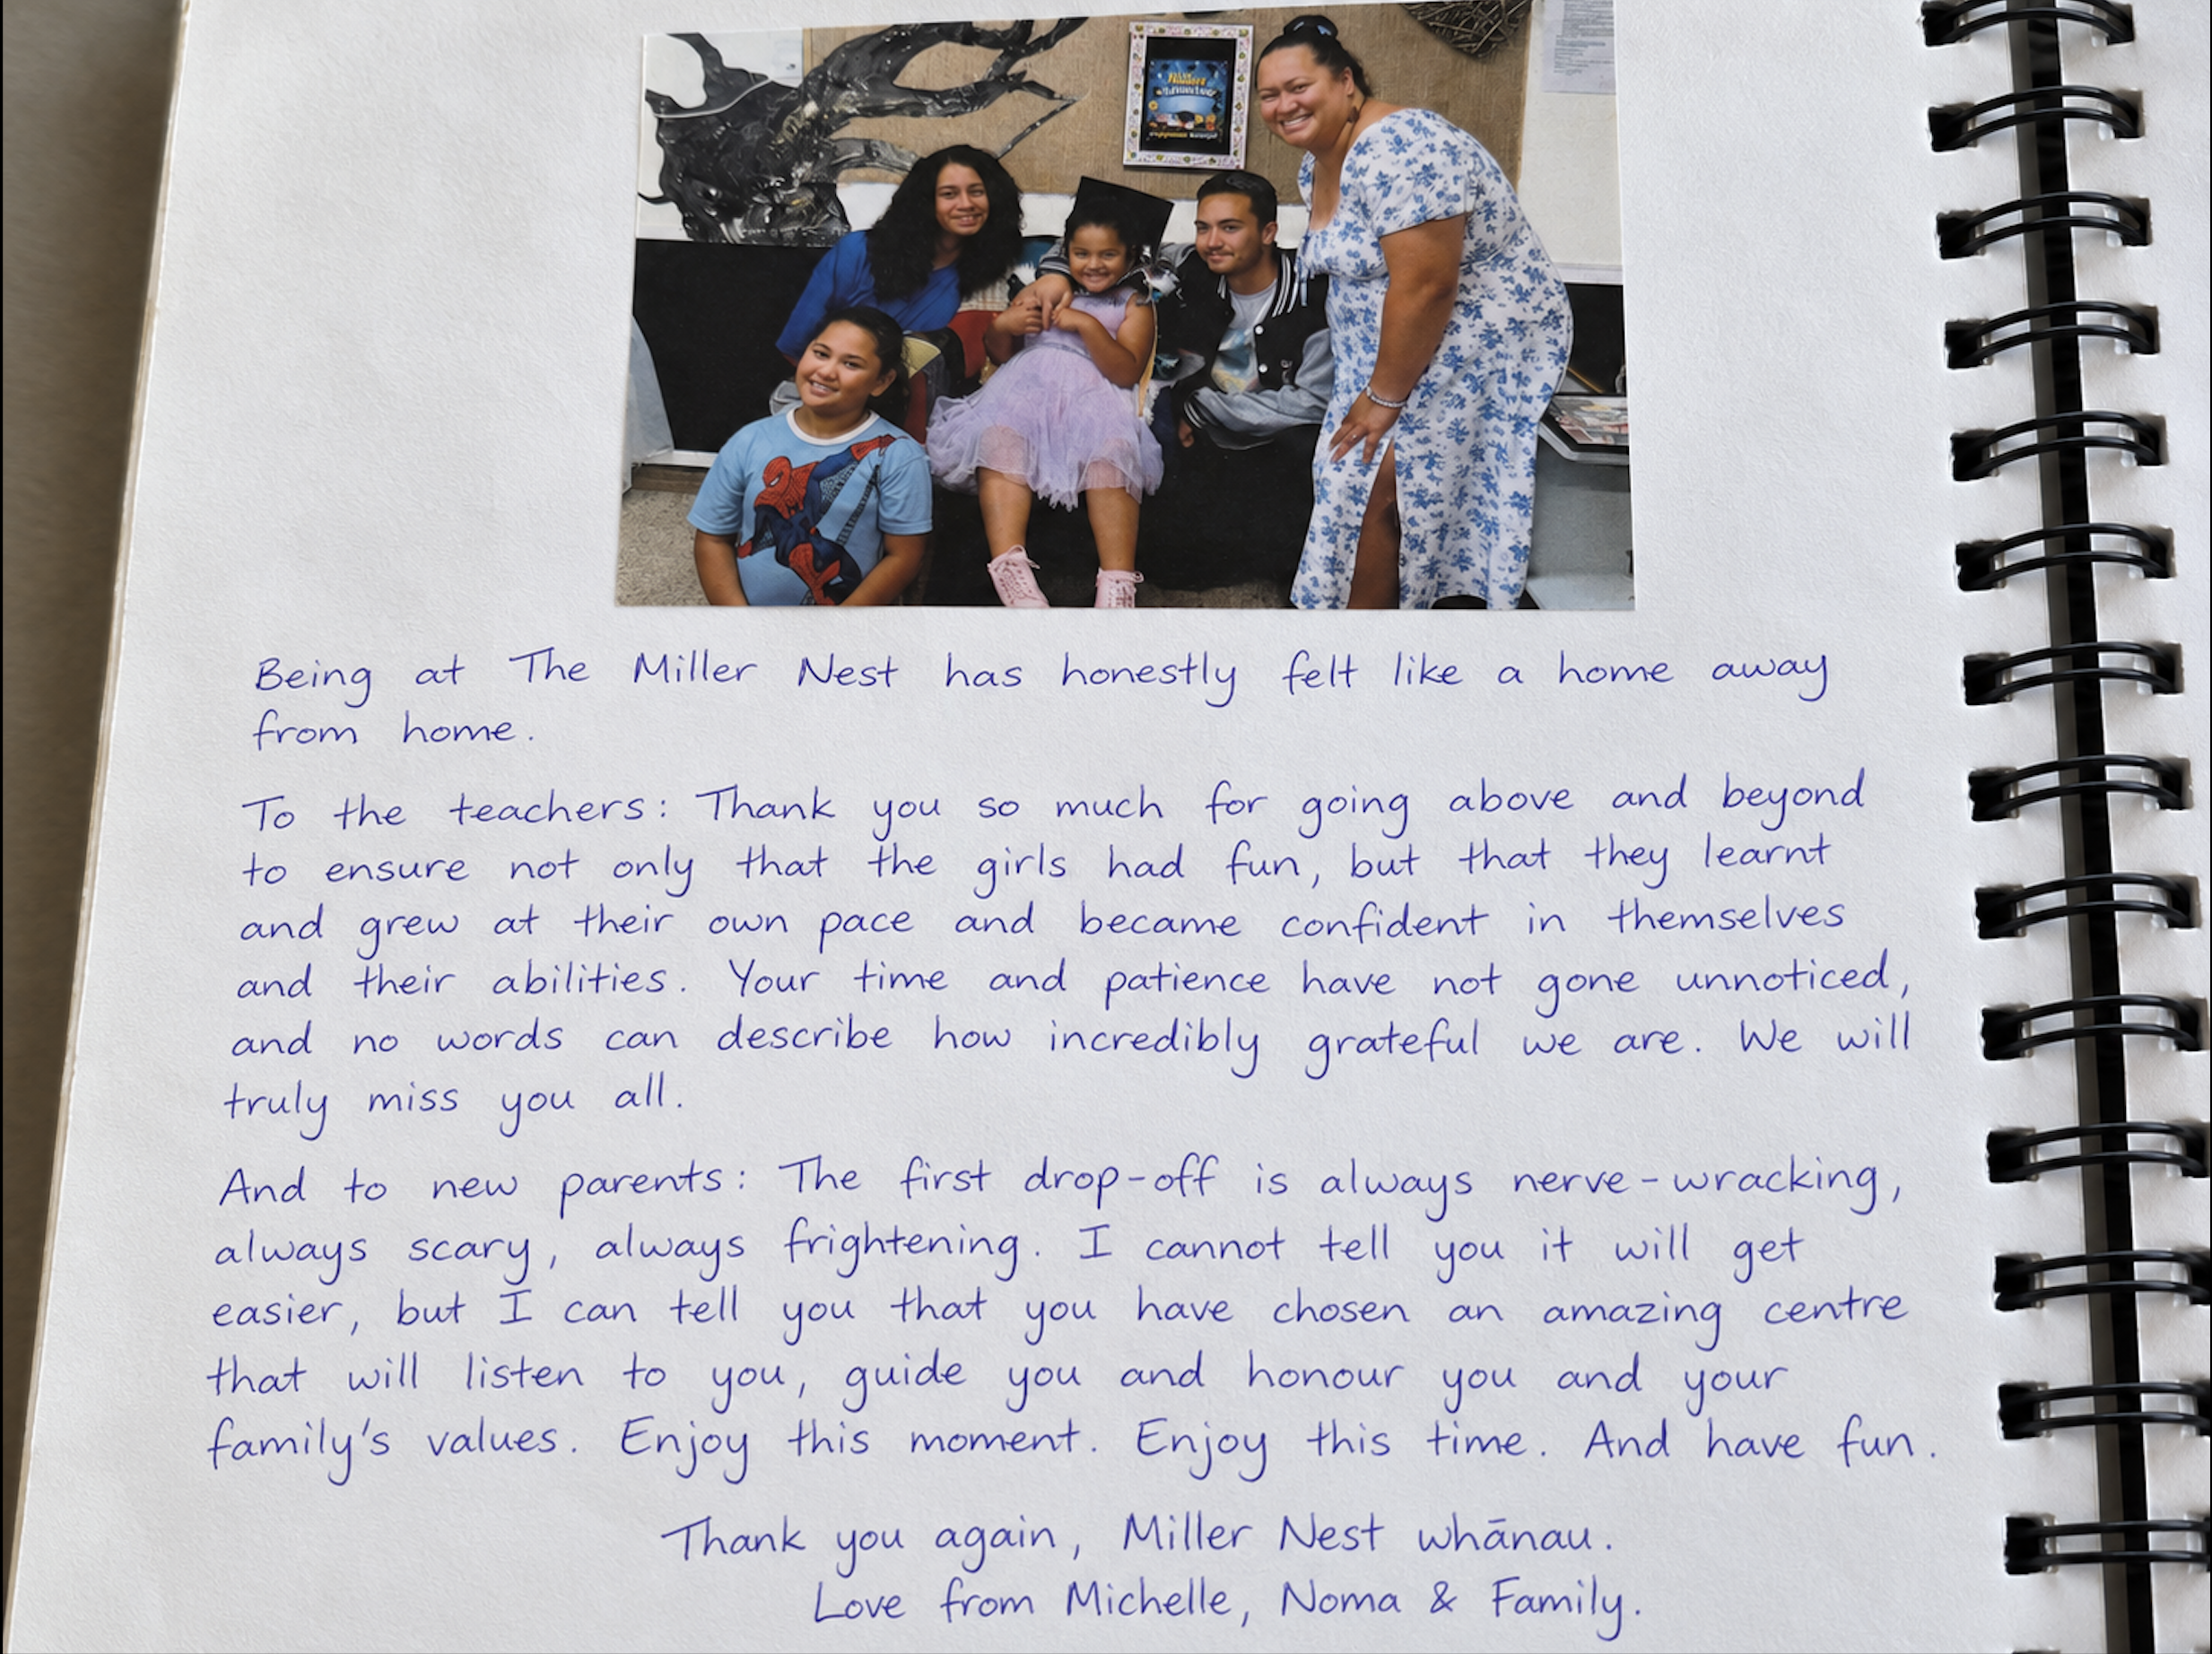 Being at The Miller Nest has honestly felt like a home away
from home.
To the teachers: Thank you so much for going above and beyond
to ensure not only that the girls had fun, but that they learnt
and grew at their own pace and became confident in themselves
and their abilities. Your time and patience have not gone unnoticed,
and no words can describe how incredibly grateful we are. We will
truly miss you all.
And to new parents: The first drop-off is always nerve-wracking,
always scary, always frightening. I cannot tell you it will get
easier, but I can tell you that you have chosen an amazing centre
that will listen to you, guide you and honour you and your
family's values. Enjoy this moment. Enjoy this time. And have fun.
Thank you again, Miller Nest whānau.
Love from Michelle, Noma & Family.